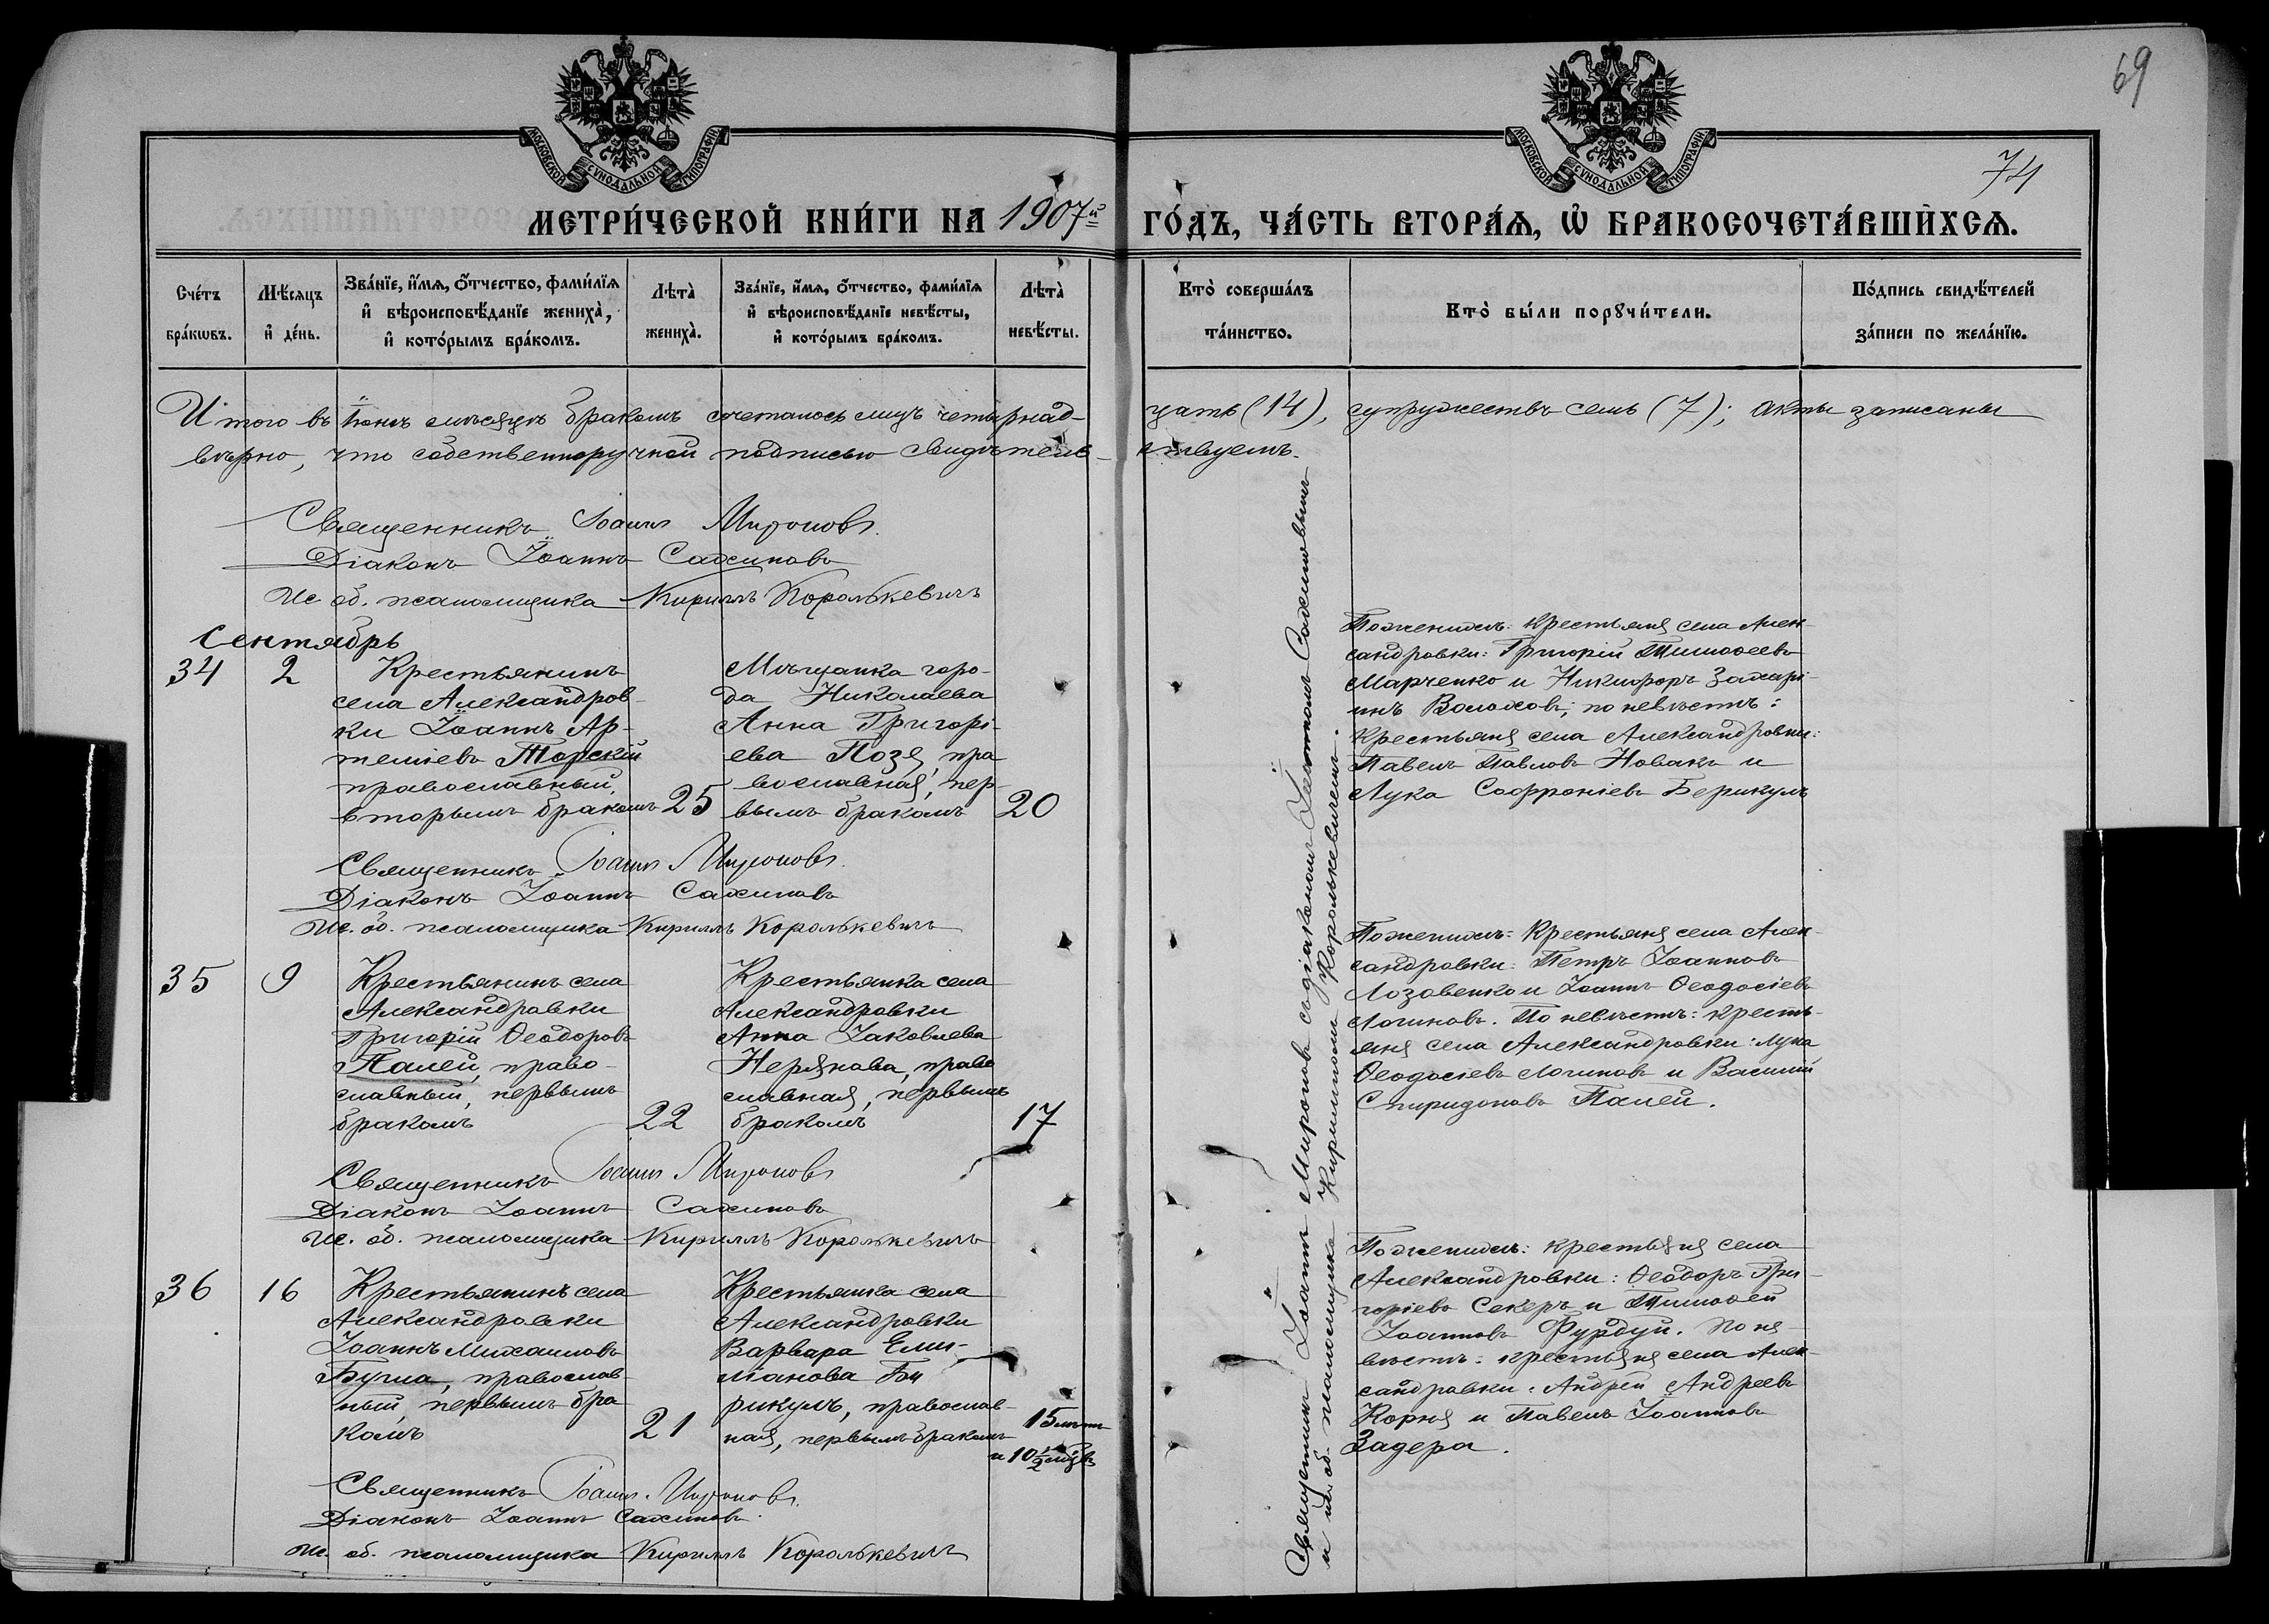 69
74
МОСКОВСКОЙ СѴНОДАЛЬНОЙ ТИПОГРАФІИ.
МОСКОВСКОЙ СѴНОДАЛЬНОЙ ТИПОГРАФІИ.
МЕТРИ́ЧЕСКОЙ КНИ́ГИ НА 1907й
ГО́ДЪ, ЧА́СТЬ ВТОРА́Ѧ, Ѡ҆ БРАКОСОЧЕТА́ВШИХСѦ.
Сче́тъ
бра́кѡвъ.
Мѣ́сяцъ
и҆ де́нь.
Зва́нїе, и҆́мѧ, ѻ҆́тчество, фами́лїѧ
и҆ вѣроисповѣ́данїе женихà,
и҆ кото́рымъ бра́комъ.
Лѣтà
женихà.
Зва́нїе, и҆́мѧ, ѻ҆́тчество, фами́лїѧ
и҆ вѣроисповѣ́данїе невѣ́сты,
и҆ кото́рымъ бра́комъ.
Лѣтà
невѣ́сты.
Кто̀ соверша́лъ
та́инство.
Кто̀ бы́ли порꙋчи́тели.
По́дпись свидѣ́телей
за́писи по жела́нїю.
Итого въ Іюнѣ мѣсяцѣ бракомъ сочеталось лицъ четырнад-
цать (14), супружествъ семь (7); акты записаны
вѣрно, что собственноручной подписью свидѣтель-
ствуемъ.
Священникъ Іоаннъ Мироновъ.
Діаконъ Іоаннъ Сахиновъ
Ис. об. псаломщика Кириллъ Королькевичъ
Сентябрь
34
2
Крестьянинъ
села Александров-
ки Іоаннъ Ар-
теміевъ Торскій
православный,
вторымъ бракомъ
25
Мѣщанка горо-
да Николаева
Анна Григорі-
ева Позя, пра-
вославная, пер-
вымъ бракомъ
20
По женихѣ: крестьяня села Алек-
сандровки: Григорій Тимоѳеевъ
Марченко и Никифоръ Захарі-
инъ Волоховъ; по невѣстѣ:
крестьяня села Александровки:
Павелъ Павловъ Новакъ и
Лука Софроніевъ Берикулъ
Священникъ Іоаннъ Мироновъ.
Діаконъ Іоаннъ Сахиновъ
Ис. об. псаломщика Кириллъ Королькевичъ
35
9
Крестьянинъ села
Александровки
Григорій Ѳеодоровъ
Палей, право-
славный, первымъ
бракомъ
22
Крестьянка села
Александровки
Анна Іаковлева
Нерянова, право
славная, первымъ
бракомъ
17
По женихѣ: крестьяня села Алек-
сандровки: Петръ Іоанновъ
Лозовенко и Іоаннъ Ѳеодосіевъ
Логиновъ. По невѣстѣ: кресть-
яня села Александровки: Лука
Ѳеодосіевъ Логиновъ и Василій
Спиридоновъ Палей.
Священникъ Іоаннъ Мироновъ
Діаконъ Іоаннъ Сахиновъ
Ис. об. псаломщика Кириллъ Королькевичъ
36
16
Крестьянинъ села
Александровки
Іоаннъ Михаиловъ
Бугла, православ-
ный, первымъ бра
комъ
21
Крестьянка села
Александровки
Варвара Емил-
іанова Бе
рикулъ, православ-
ная, первымъ бракомъ
15 лѣтъ
и 10 1/2 мѣс.
По женихѣ: крестьяня села
Александровки: Ѳеодоръ Гри-
горіевъ Секеръ и Тимоѳей
Іоанновъ Фурдуй. По не-
вѣстѣ: крестьяня села Алек-
сандровки: Андрей Андреевъ
Корня и Павелъ Іоанновъ
Задера.
Священникъ Іоаннъ Мироновъ.
Діаконъ Іоаннъ Сахиновъ.
Ис. об. псаломщика Кириллъ Королькевичъ
Священникъ Іоаннъ Мироновъ съ діакономъ Іоанномъ Сахиновымъ
и ис. об. псаломщика Кирилломъ Королькевичемъ.